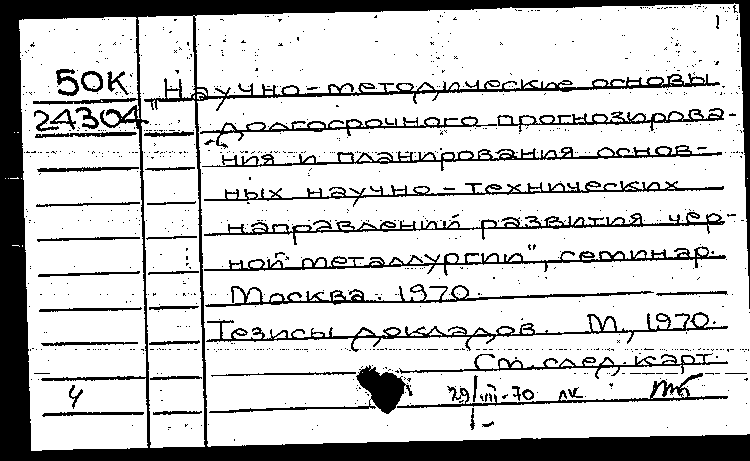 1
50К
24304
„Научно-методические основы
долгосрочного прогнозирова-
ния и планирования основ-
ных научно-технических
направлений развития чер-
ной металлургии", семинар.
Москва. 1970.
Тезисы докладов. М., 1970.
См. след. карт.
4
29/VII-70 лк